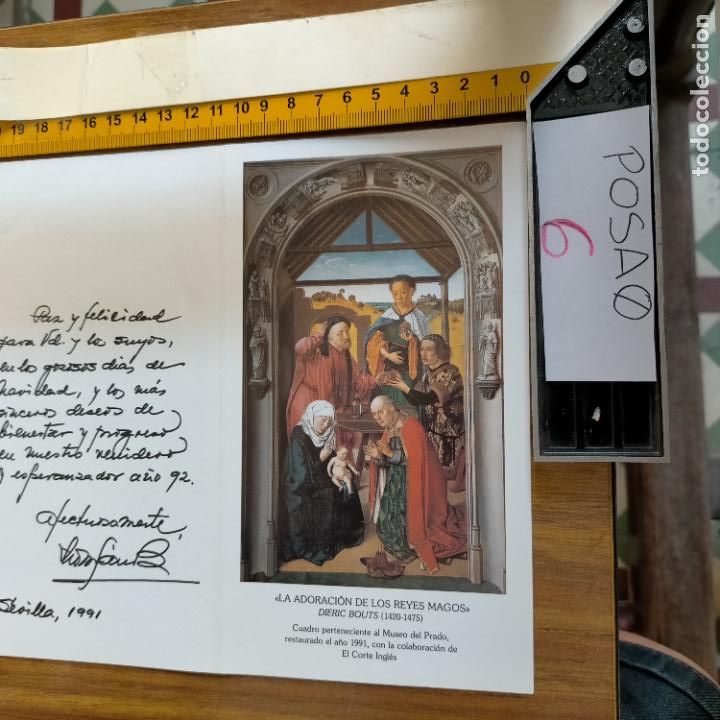 19 18 17 16 15 14 13 12 11 10 9 8 7 6 5 4 3 2 1 0
POSAO
6
todocoleccion
Paz y felicidad
para Vd. y los suyos,
en los gozosos días de
Navidad, y los más
sinceros deseos de
bienestar y progreso
en nuestro venidero
y esperanzador año 92.
afectuosamente,
Sevilla, 1991
«LA ADORACIÓN DE LOS REYES MAGOS»
DIERIC BOUTS (1420-1475)
Cuadro perteneciente al Museo del Prado,
restaurado el año 1991, con la colaboración de
El Corte Inglés